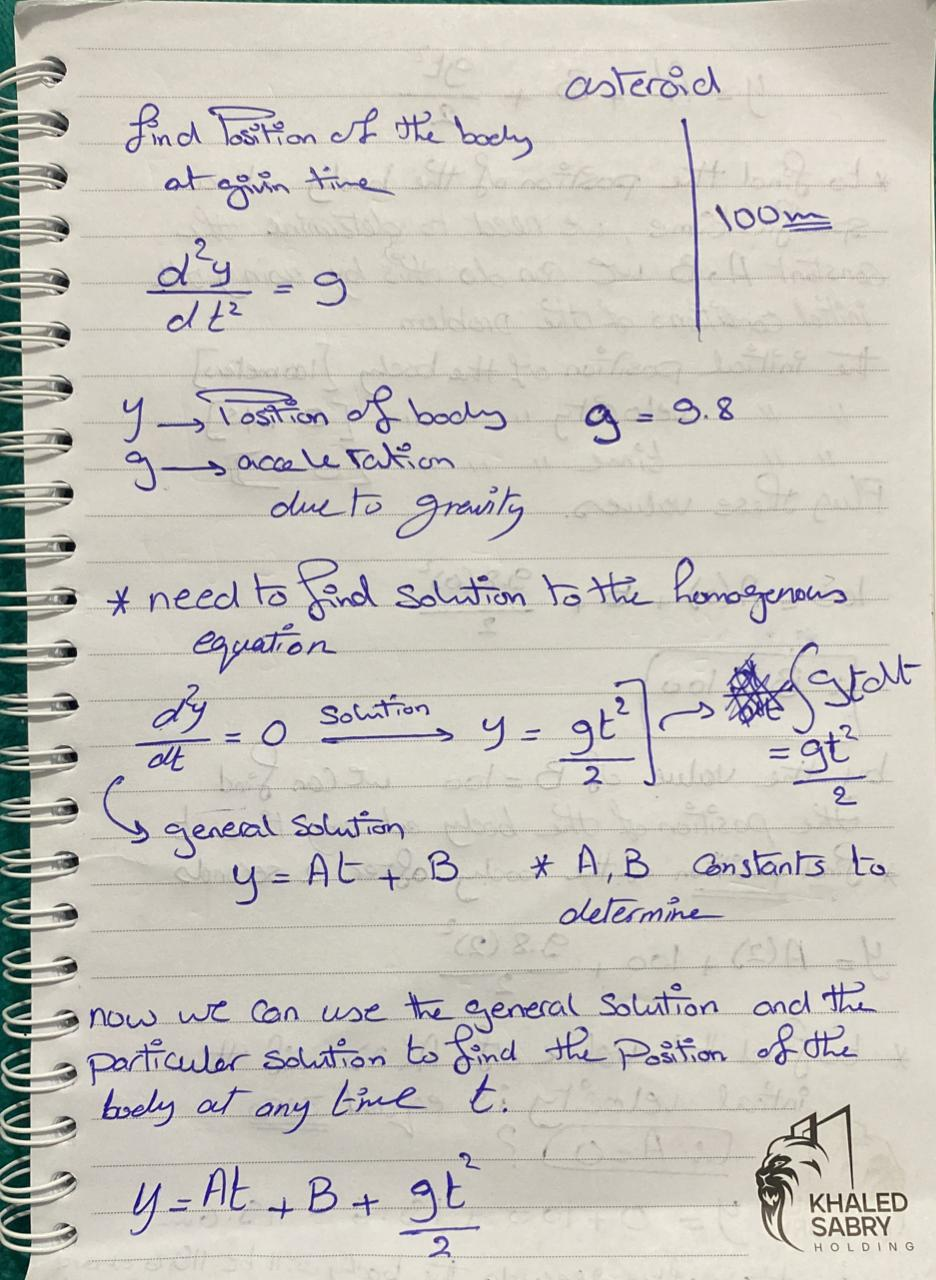 asteroid
find Position of the body
at givin time
100m
d²y/dt² = g
y → Position of body g = 9.8
g → acceleration
due to gravity
* need to find solution to the homogenous
equation
d²y/dt = 0 Solution → y = gt²/2 ] → ∫gtdt
= gt²/2
↳ general solution
y = At + B * A, B Constants to
determine
now we can use the general solution and the
particuler solution to find the Position of the
body at any time t.
y = At + B + gt²/2
KHALED
SABRY
HOLDING